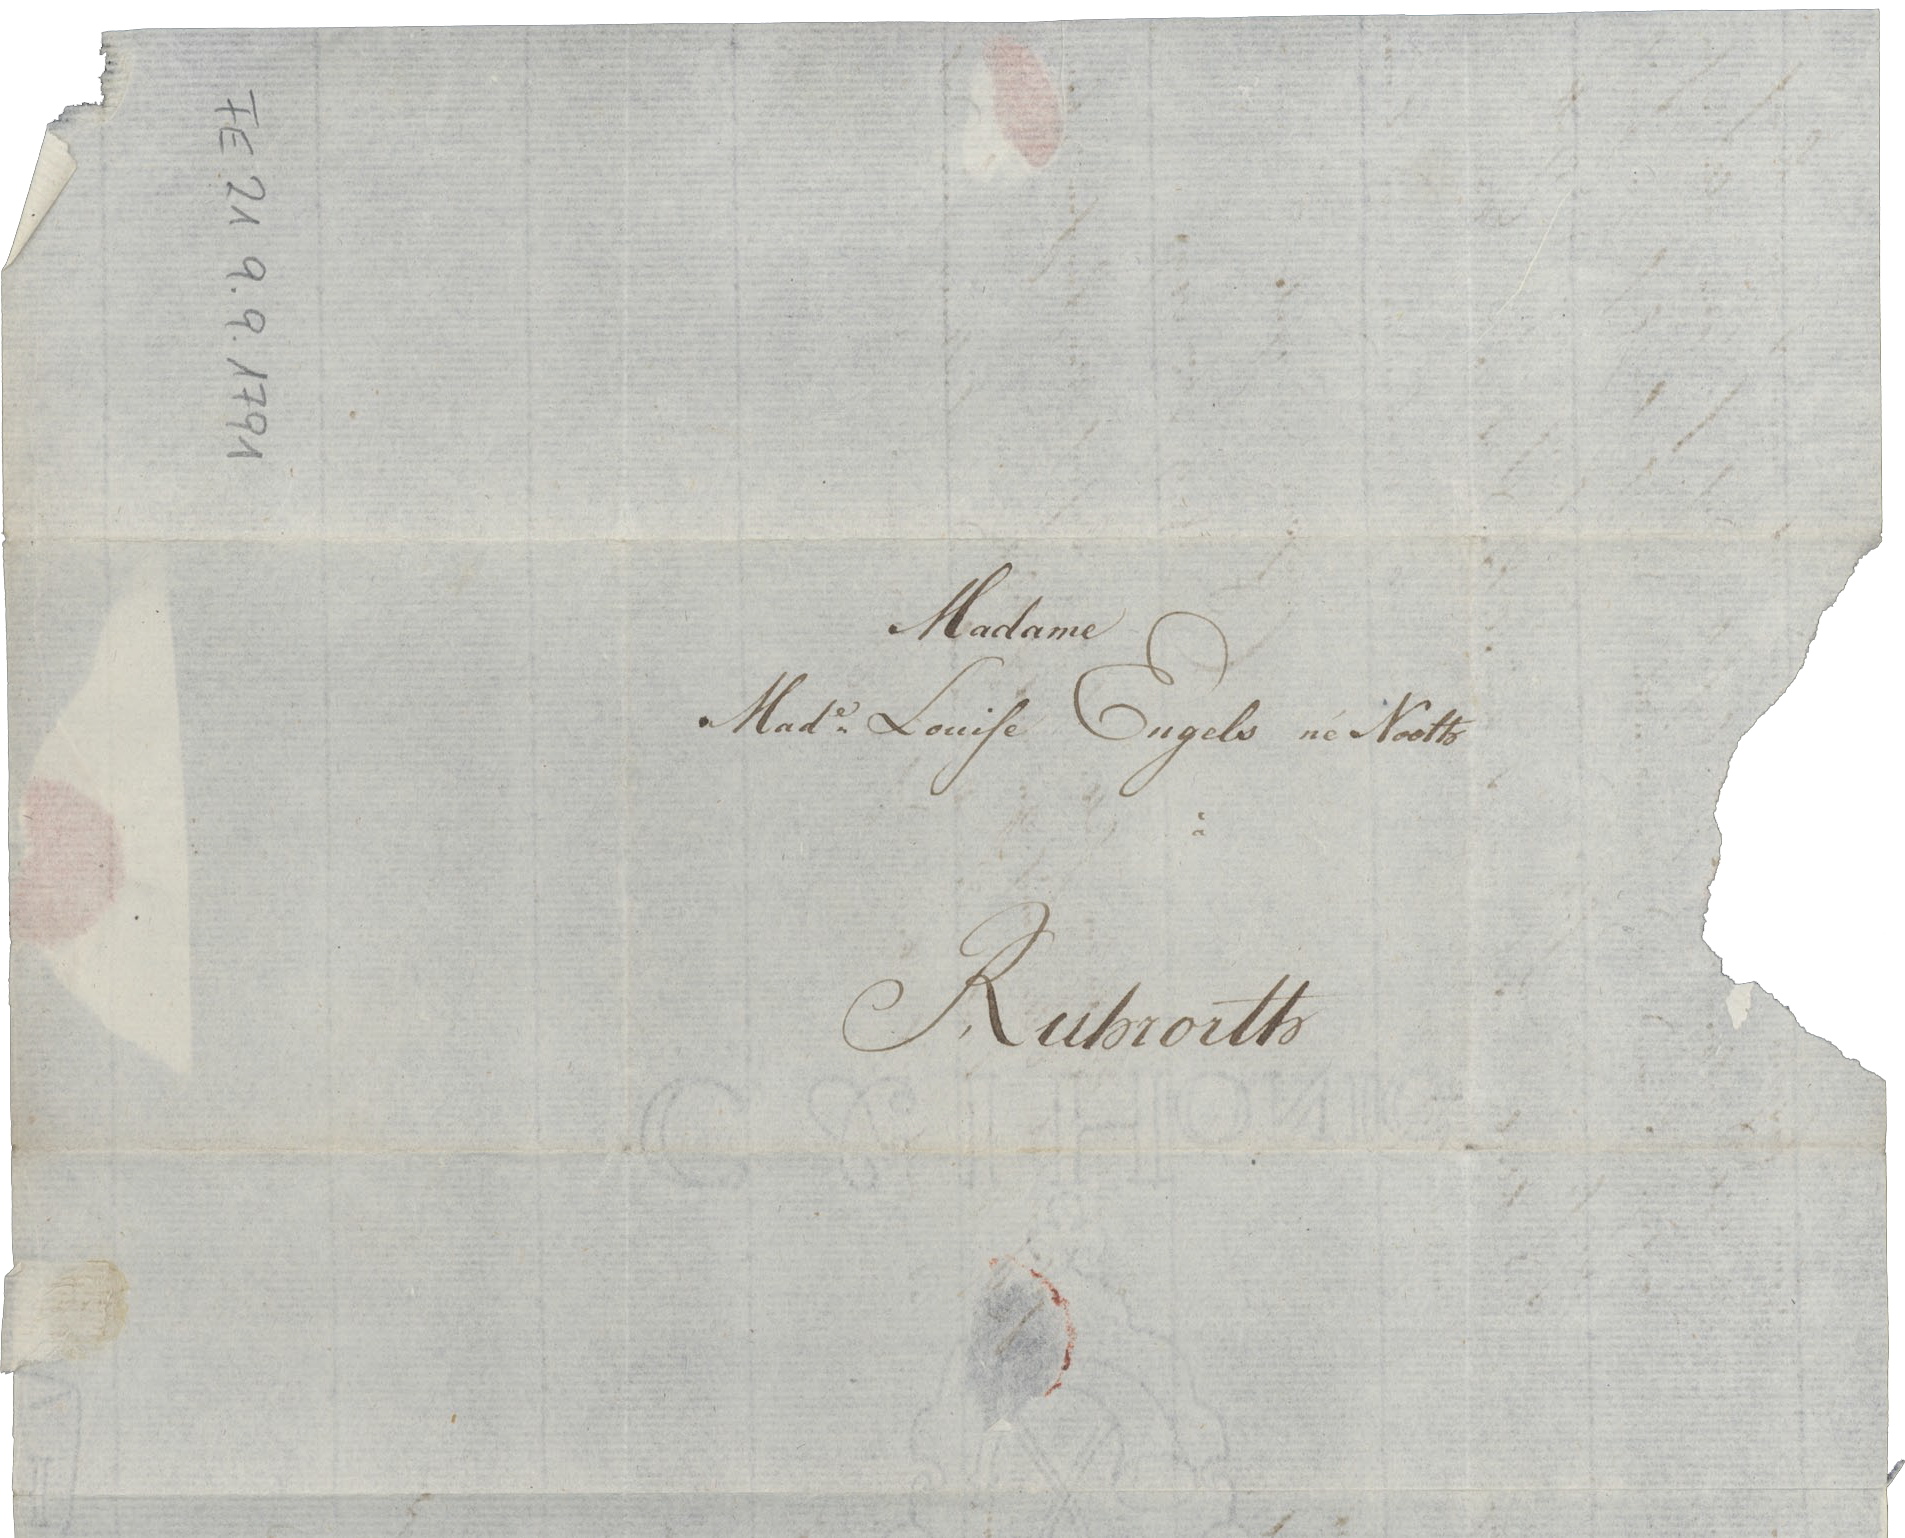 FE 21 9.9.1791
Madame
Made. Louise Engels né Noott
à
Ruhrortt
C & I HONIG